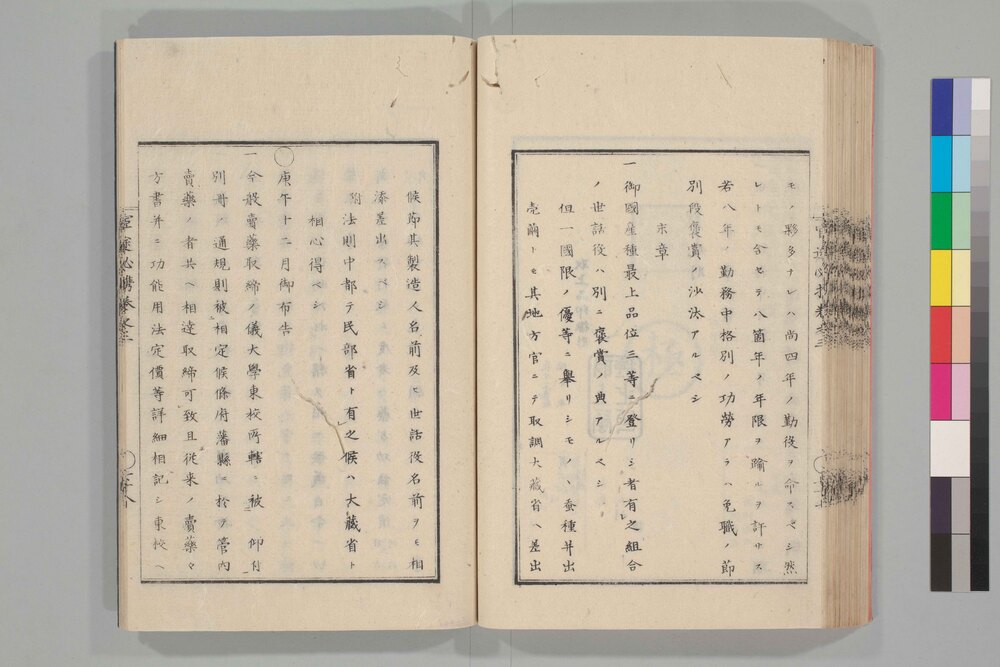 モノ夥多ナレハ尚四年ノ勤役ヲ命スヘシ然
レトモ合セテ八箇年ノ年限ヲ踰ルヲ許サス
若八年ノ勤務中格別ノ功勞アラハ免職ノ節
別段褒賞ノ沙汰アルベシ
末章
一御國産種最上品位三等ニ登リシ者有之組合
ノ世話役ハ別ニ褒賞ノ典アルベシ
但一國限ノ優等ニ擧リシモノハ蚕種并出
売繭トモ其地方官ニテ取調大藏省ヘ差出
候節其製造人名前及ヒ世話役名前ヲモ相
添差出スベシ
附法則中都テ民部省ト有之候ハ大藏省ト
相心得ベシ
○
庚午十二月御布告
一今般賣藥取締ノ儀大學東校所轄ニ被 仰付
別冊ノ通規則被相定候條府藩縣ニ於テ管內
賣藥ノ者共ヘ相達取締可致且從来ノ賣藥々
方書并ニ功能用法定價等詳細相記シ東校ヘ